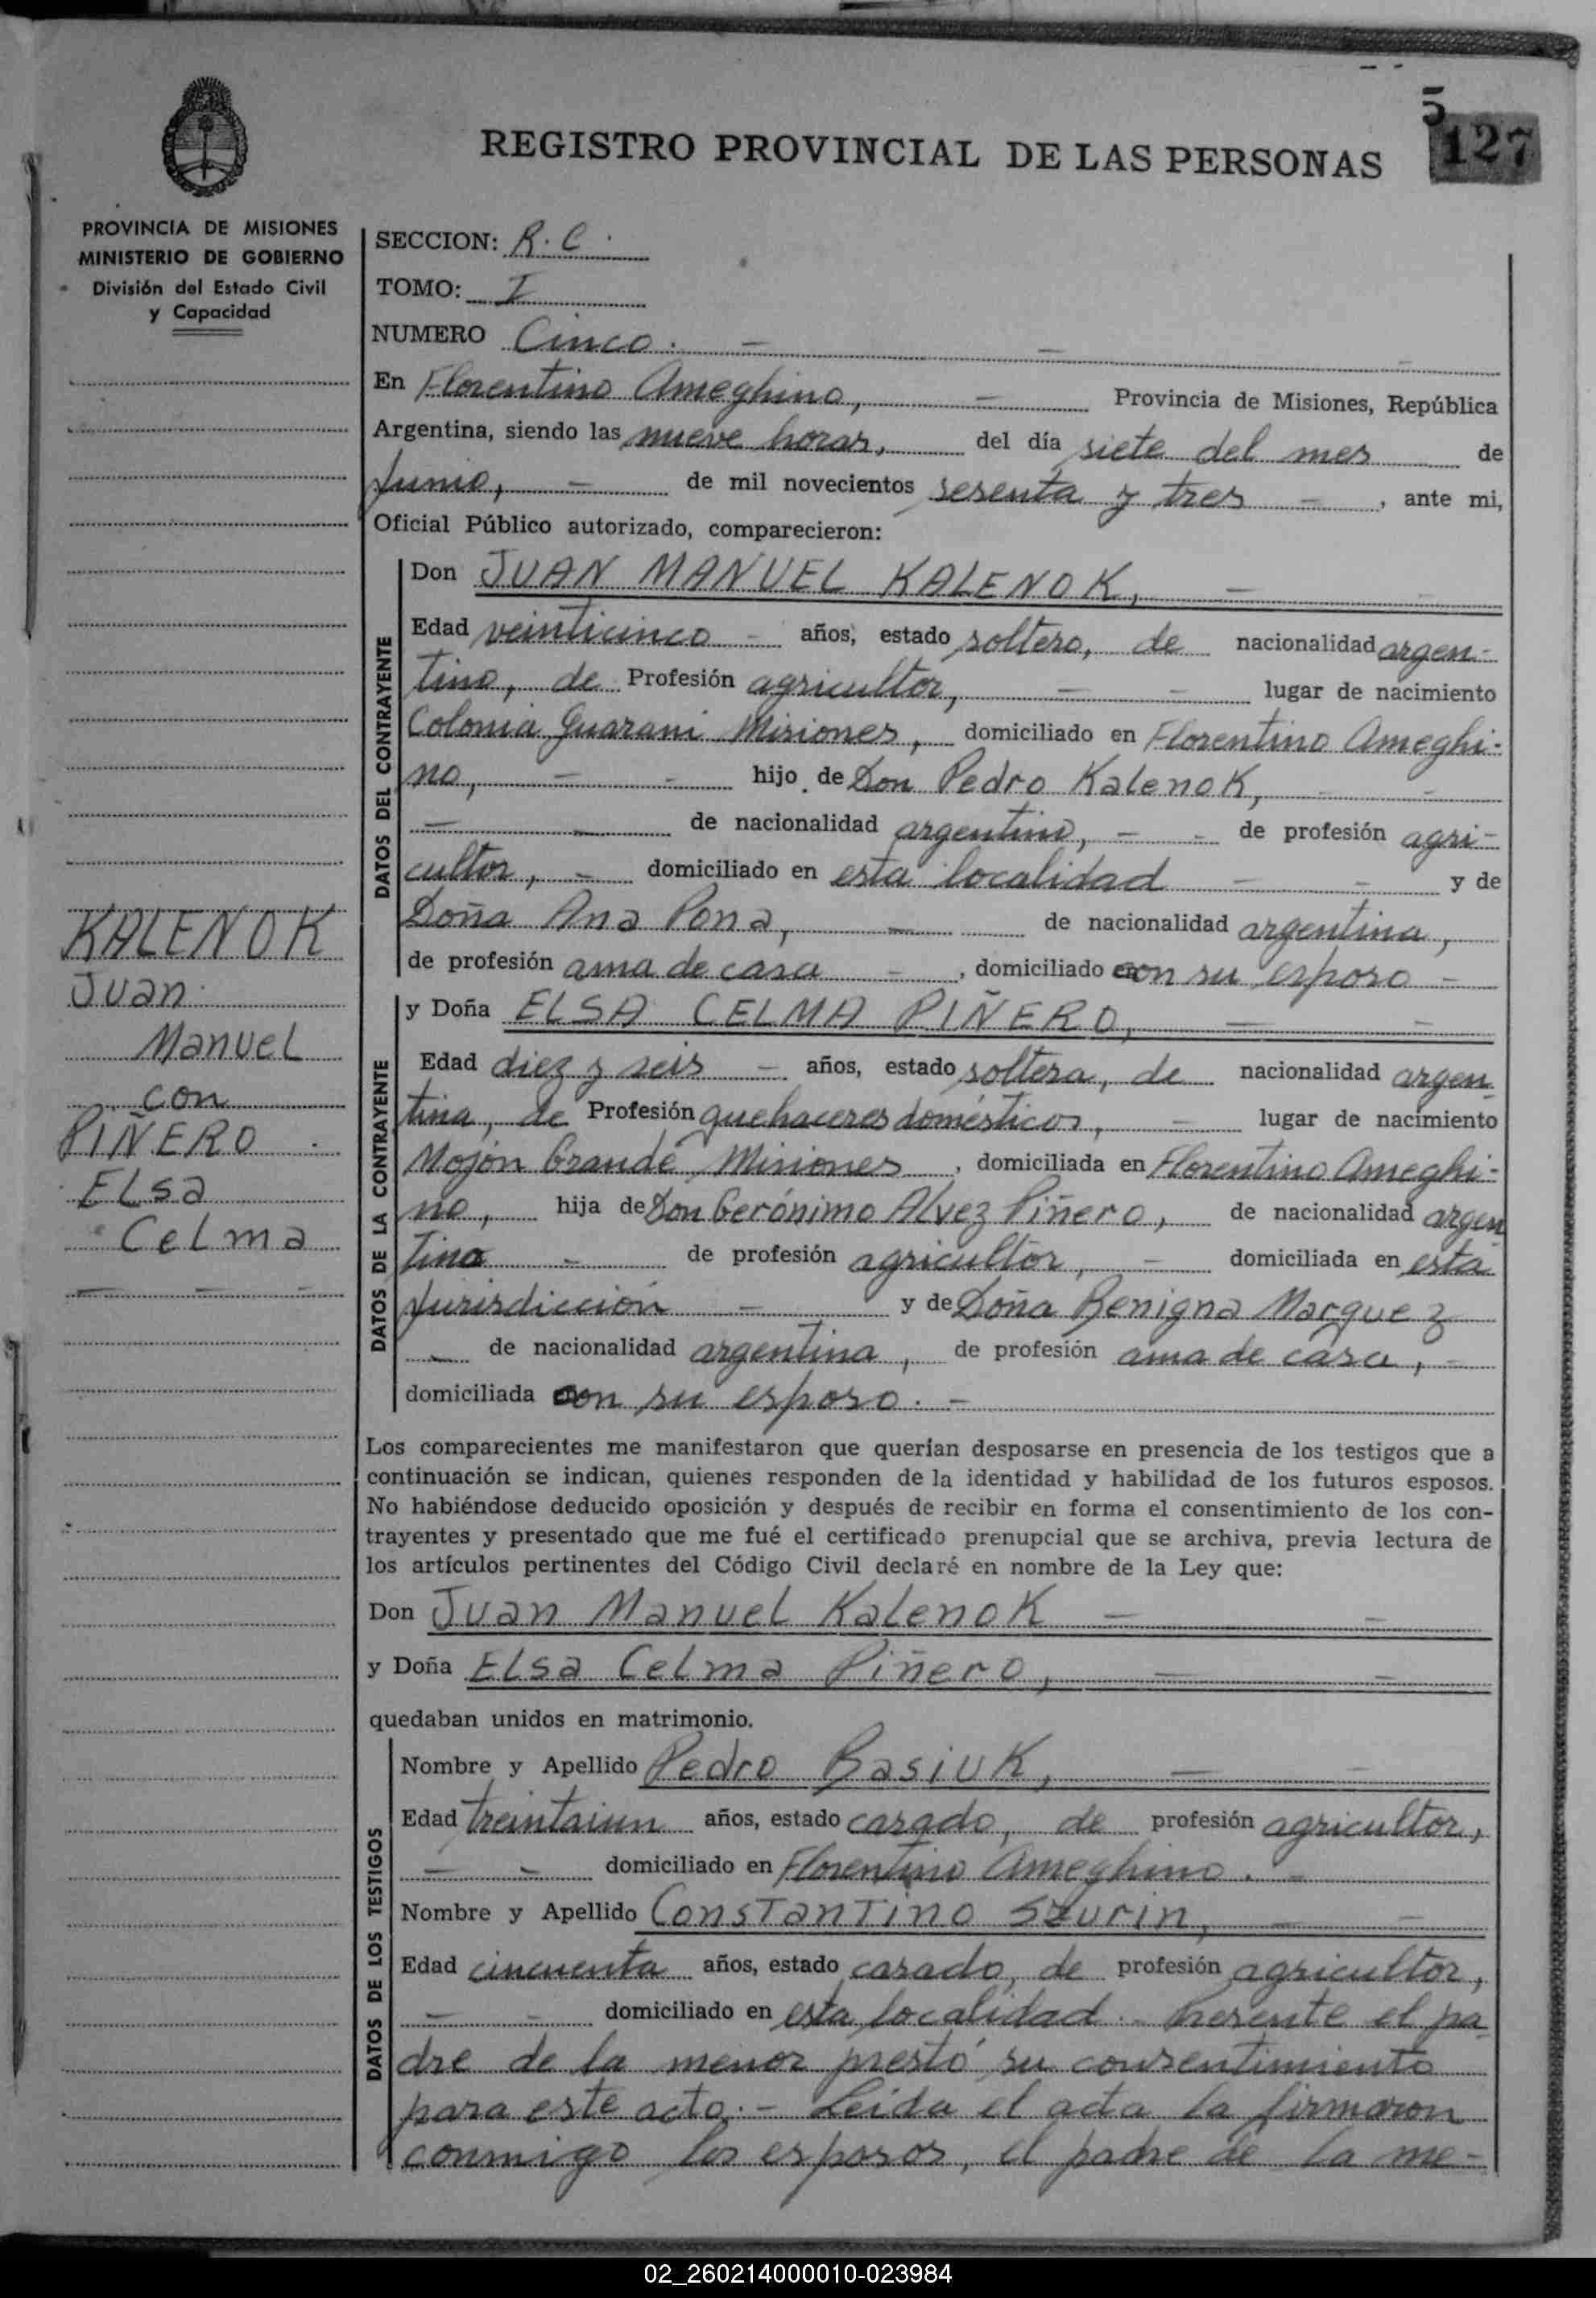 5
127
REGISTRO PROVINCIAL DE LAS PERSONAS
PROVINCIA DE MISIONES
MINISTERIO DE GOBIERNO
División del Estado Civil
y Capacidad
SECCION: R. C.
TOMO: I
NUMERO Cinco. - - -
En Florentino Ameghino, - Provincia de Misiones, República
Argentina, siendo las nueve horas, del día siete del mes de
Junio, - de mil novecientos sesenta y tres - , ante mi,
Oficial Público autorizado, comparecieron:
DATOS DEL CONTRAYENTE
Don JUAN MANUEL KALENOK, - -
Edad veinticinco - años, estado soltero, de nacionalidad argen-
tino, de Profesión agricultor, - - lugar de nacimiento
Colonia Guarani Misiones, domiciliado en Florentino Ameghi-
no, - - hijo de Don Pedro Kalenok, - -
- - de nacionalidad argentino, - - de profesión agri-
cultor, - domiciliado en esta localidad - - y de
Doña Ana Pona, - de nacionalidad argentina,
de profesión ama de casa - , domiciliado con su esposo -
KALENOK
Juan
Manuel
con
PIÑERO
Elsa
Celma
- - -
DATOS DE LA CONTRAYENTE
y Doña ELSA CELMA PIÑERO, - -
Edad diez y seis - años, estado soltera, de nacionalidad argen
tina, de Profesión quehaceres domésticos, - lugar de nacimiento
Mojón Grande, Misiones , domiciliada en Florentino Ameghi-
no, hija de Don Gerónimo Alvez Piñero, de nacionalidad argen
tina - de profesión agricultor, - domiciliada en esta
Jurisdicción - y de Doña Benigna Marquez
- de nacionalidad argentina, de profesión ama de casa, -
domiciliada con su esposo. -
Los comparecientes me manifestaron que querían desposarse en presencia de los testigos que a
continuación se indican, quienes responden de la identidad y habilidad de los futuros esposos.
No habiéndose deducido oposición y después de recibir en forma el consentimiento de los con-
trayentes y presentado que me fué el certificado prenupcial que se archiva, previa lectura de
los artículos pertinentes del Código Civil declaré en nombre de la Ley que:
Don Juan Manuel Kalenok - -
y Doña Elsa Celma Piñero, - -
quedaban unidos en matrimonio.
DATOS DE LOS TESTIGOS
Nombre y Apellido Pedro Basiuk, - -
Edad treintaiun años, estado casado, de profesión agricultor,
- - domiciliado en Florentino Ameghino. -
Nombre y Apellido Constantino Szurin, - -
Edad cincuenta años, estado casado, de profesión agricultor,
- - domiciliado en esta localidad. Presente el pa
dre de la menor prestó su consentimiento
para este acto. - Leída el acta la firmaron
conmigo los esposos, el padre de la me-
02_260214000010-023984